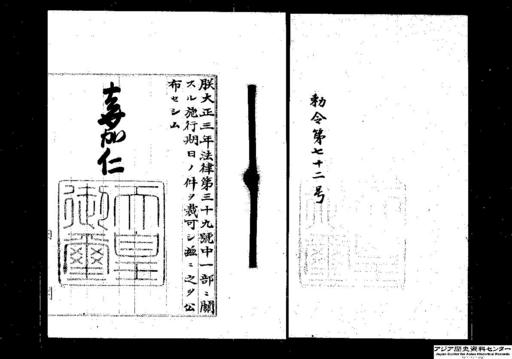 勅令第七十二号
朕大正三年法律第三十九號中一部ニ關
スル施行期日ノ件ヲ裁可シ茲ニ之ヲ公
布セシム
嘉仁
天皇
御璽
アジア歴史資料センター
Japan Center for Asian Historical Records